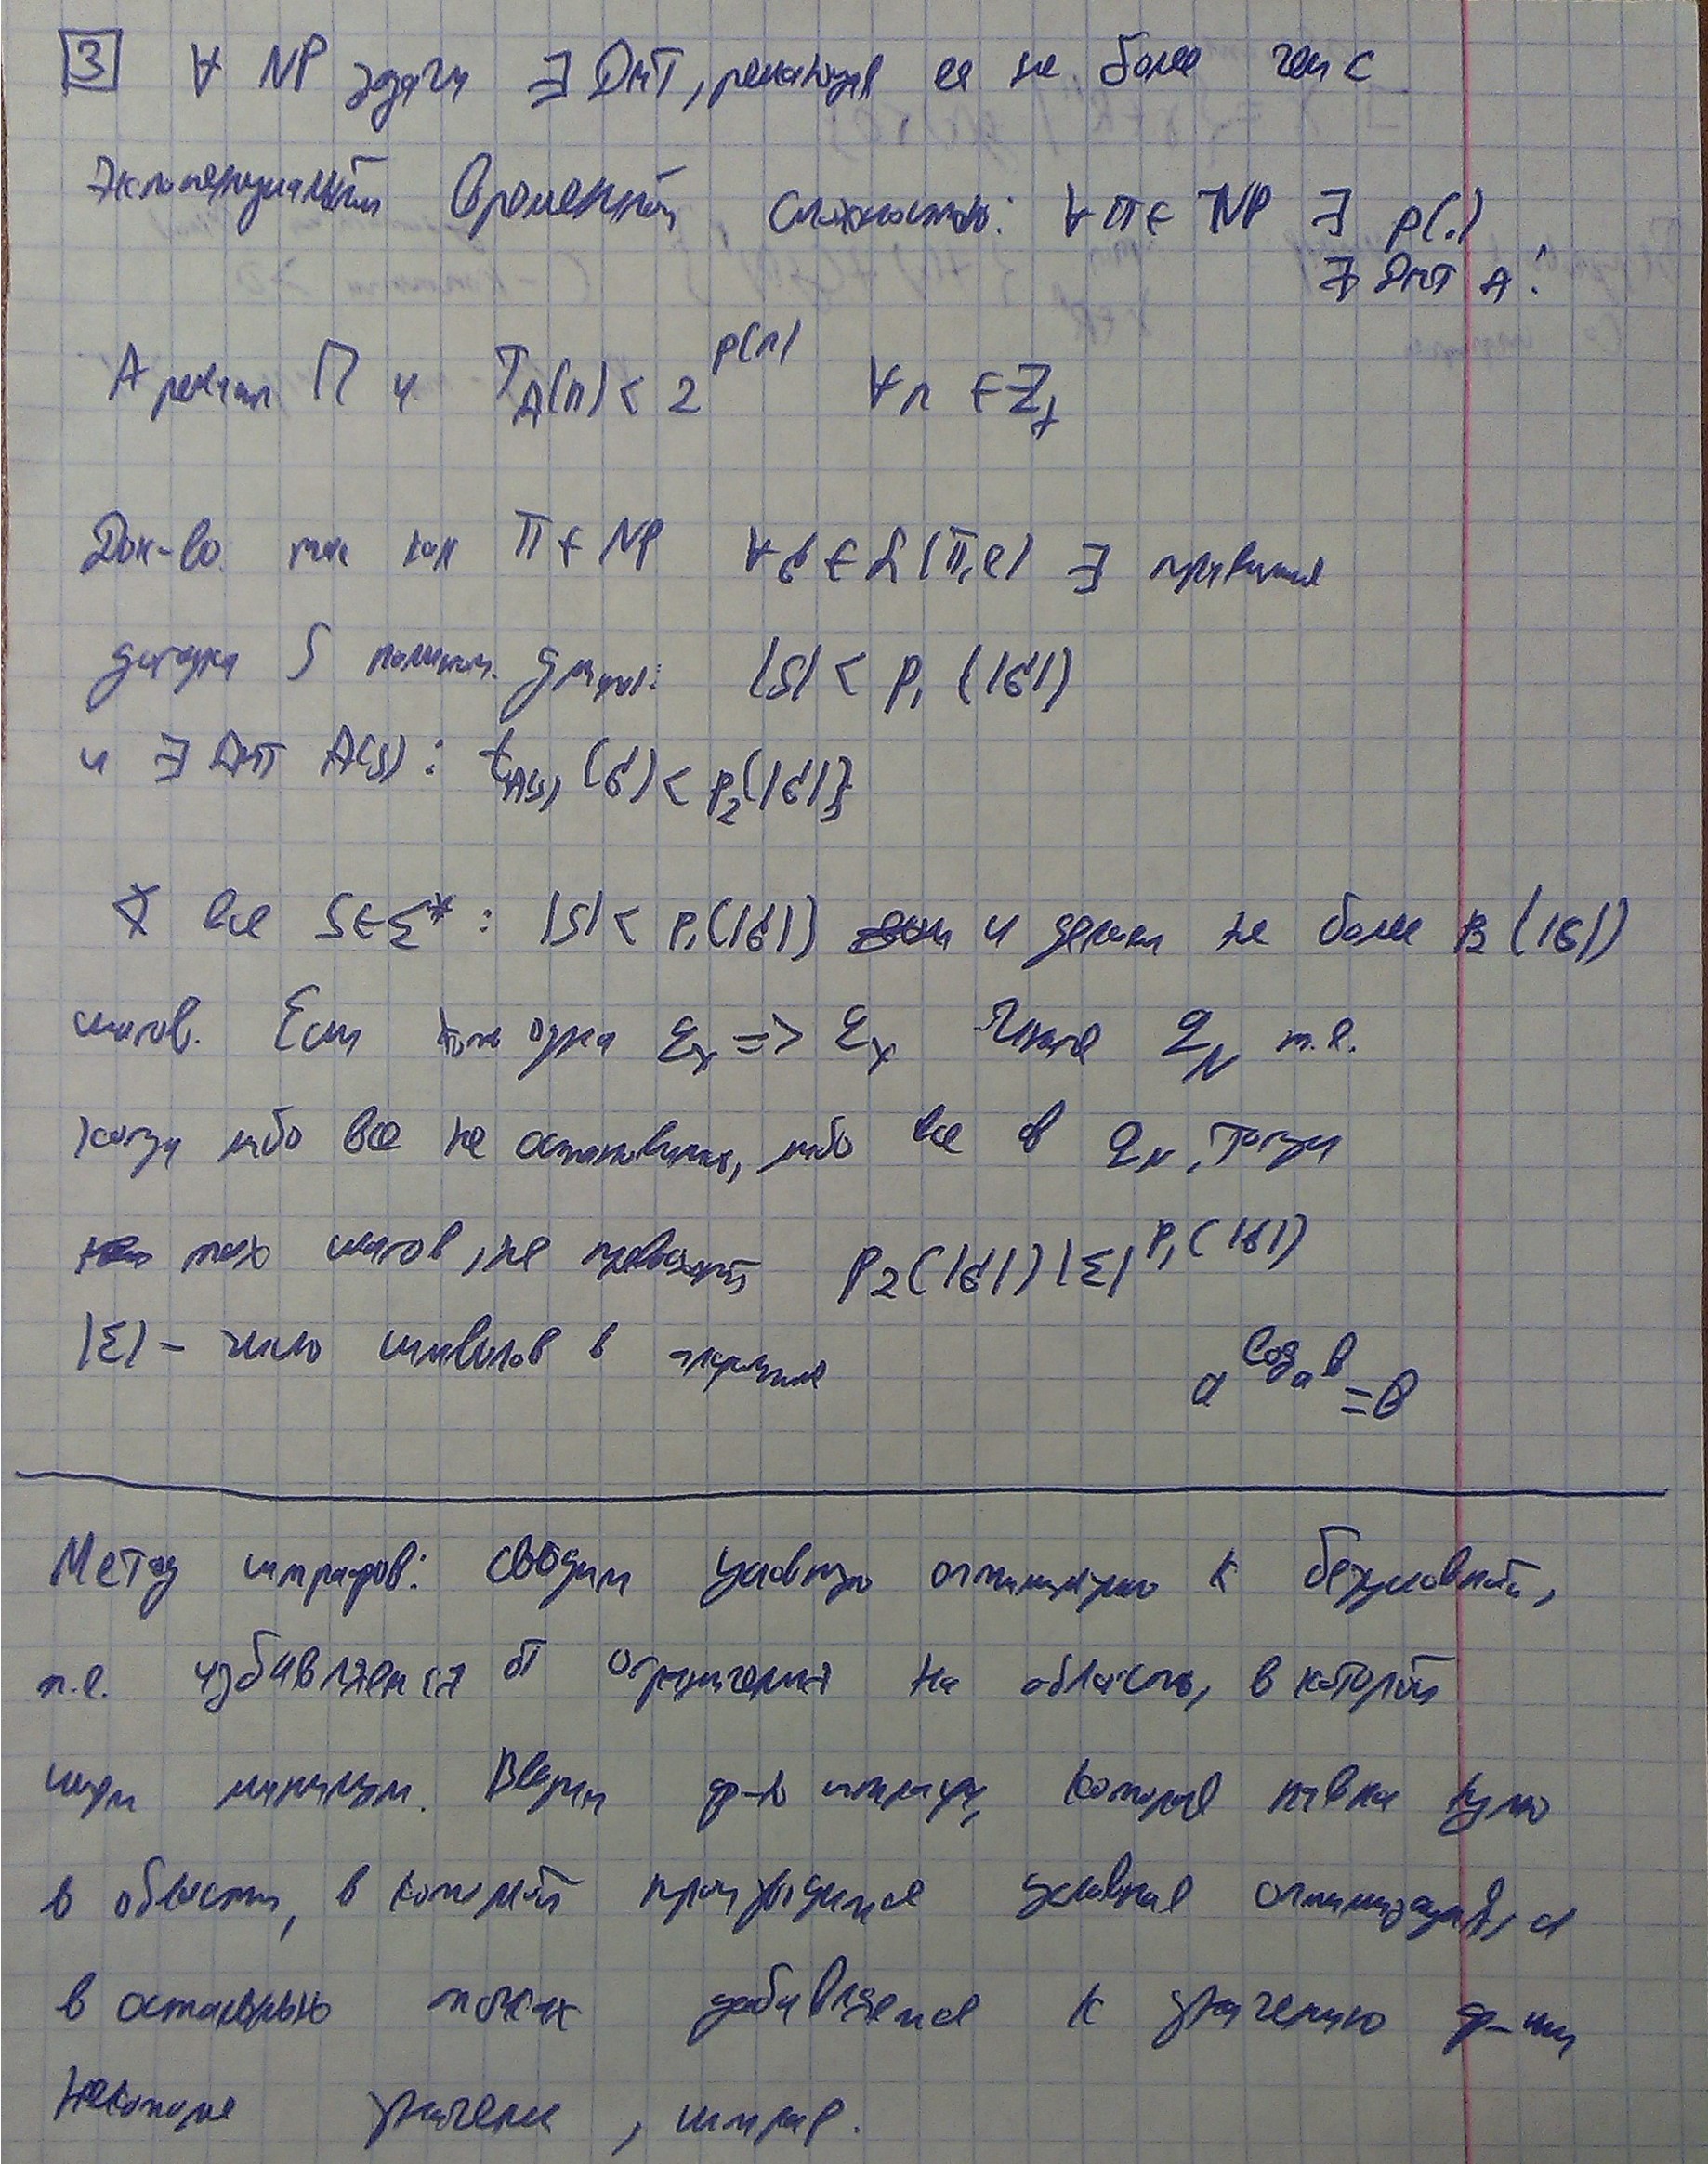 3 ∀ NP задачи ∃ ДМТ, решающая её не более чем с
экспоненциальной временной сложностью: ∀ П ∈ NP ∃ p(.)
∃ ДМТ A:
A решает П и T_A(n) < 2^{p(n)} ∀ n ∈ Z_+
Док-во. так как П ∈ NP ∀ σ ∈ L(П, e) ∃
догадка S полином. длины: |S| < p_1(|σ|)
и ∃ ДМТ A(S): t_{A(S)}(σ) < p_2(|σ|)
все S ∈ Σ*: |S| < p_1(|σ|) и делаем не более p_2(|σ|)
шагов. Если хоть одна q_y => q_y Иначе q_N т.е.
когда либо все не остановились, либо все в q_N, тогда
шагов, не превосходит p_2(|σ|) |Σ|^{p_1(|σ|)}
|Σ| - число символов в алфавите
a^{log_a b} = b
Метод штрафов: сводим условную оптимизацию к безусловной,
т.е. избавляемся от ограничения на область, в которой
ищем минимум. Вводим ф-ю штрафа, которая равна нулю
в области, в которой производится условная оптимизация, а
в остальных точках добавляется к значению ф-ции
некоторое значение, штраф.